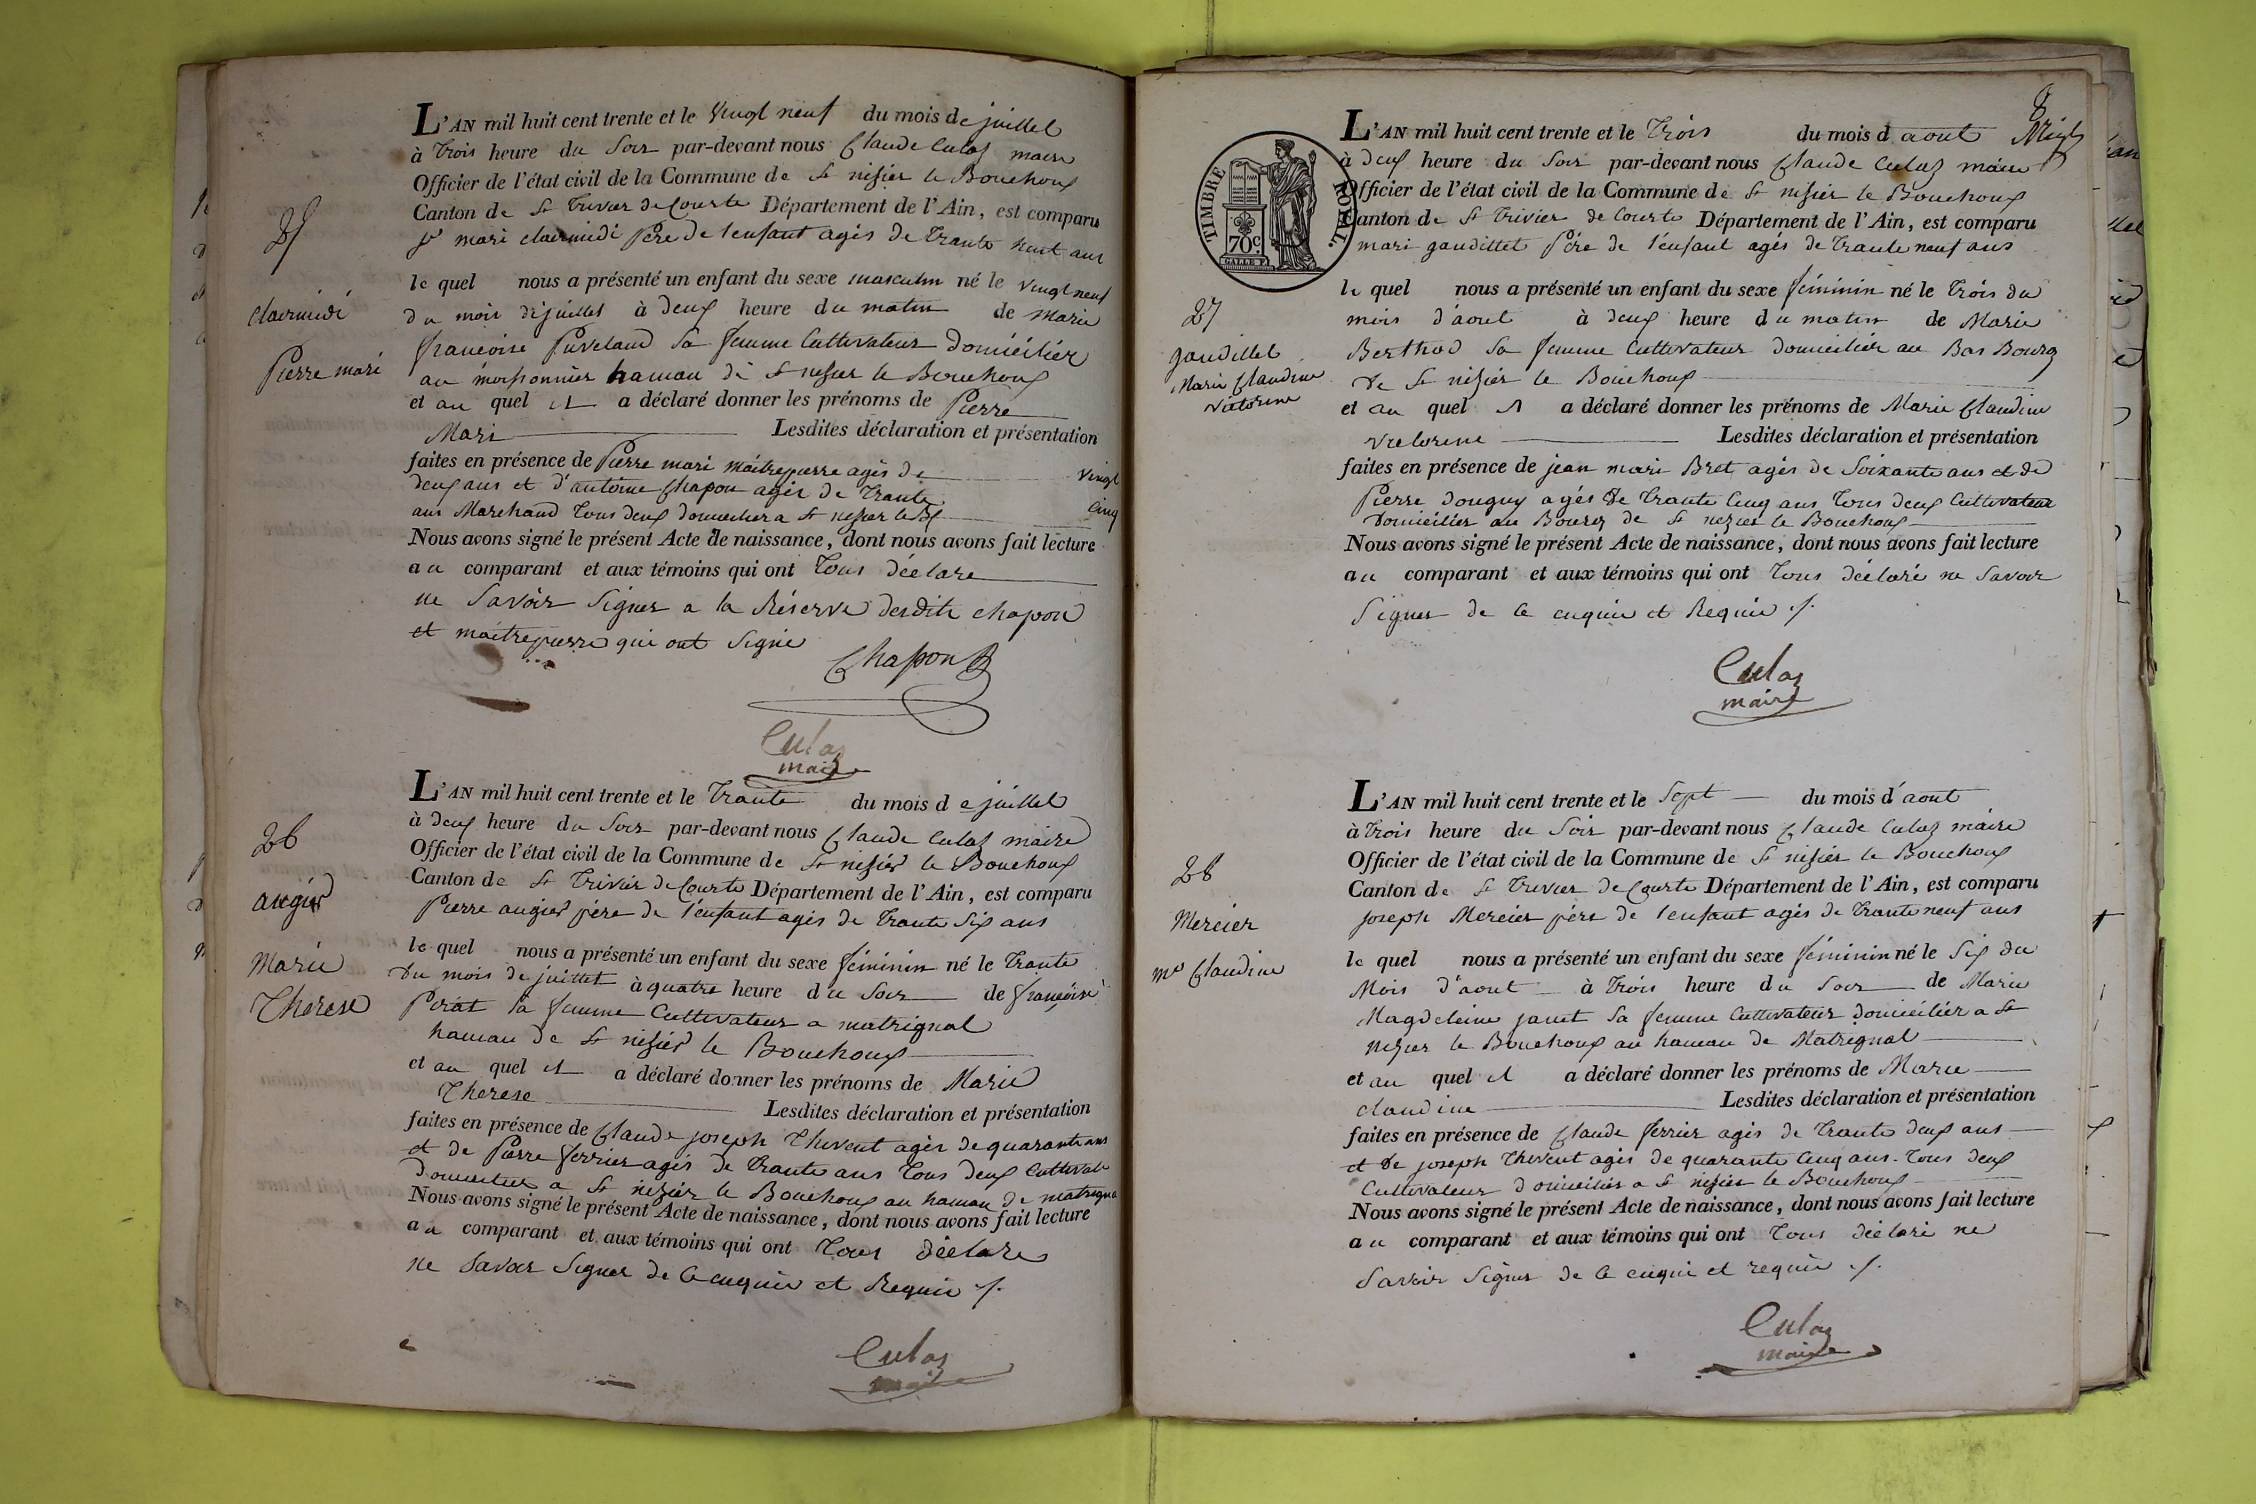 L'AN mil huit cent trente et le vingt neuf du mois de juillet
à trois heure du soir par-devant nous Claude Culaz maire
Officier de l'état civil de la Commune de St nisier le Bouchoux
Canton de St trivier de Courte Département de l'Ain, est comparu
mari clairmidi père de l'enfant agés de trante huit ans
25
clairmidi
Pierre mari
le quel nous a présenté un enfant du sexe masculin né le vingt neuf
du mois de juillet à deux heure du matin de Marie
françoise Puveland sa femme Cultivateur domicilier
au moissonnier hamau de St nisier le Bouchoux
et au quel il a déclaré donner les prénoms de Pierre
Mari Lesdites déclaration et présentation
faites en présence de Pierre mari maitrepierre agés de vingt
deux ans et d'antoine Chapon agés de trante cinq
ans Marchand tous deux domicilier a St nisier le Bx
Nous avons signé le présent Acte de naissance, dont nous avons fait lecture
au comparant et aux témoins qui ont tous déclare
ne savoir signer a la Réserve desdits chapon
et maitrepierre qui ont signé
Chapon
Culaz
maire
L'AN mil huit cent trente et le trante du mois de juillet
à deux heure du soir par-devant nous Claude Culaz maire
Officier de l'état civil de la Commune de St nisier le Bouchoux
Canton de St Trivier de Courte Département de l'Ain, est comparu
Pierre augier père de l'enfant agés de trante six ans
26
augier
Marie
Therese
le quel nous a présenté un enfant du sexe féminin né le trante
du mois de juillet à quatre heure du soir de françoise
Perat sa femme Cultivateur a matrignat
hamau de St nisier le Bouchoux
et au quel il a déclaré donner les prénoms de Marie
Therese Lesdites déclaration et présentation
faites en présence de Claude joseph Thevent agés de quarante ans
et de Pierre ferrier agés de trante ans tous deux Cultivat
domicilier a St nisier le Bouchoux au hamau de matrigna
Nous avons signé le présent Acte de naissance, dont nous avons fait lecture
au comparant et aux témoins qui ont tous déclare
ne savoir signer de ce enquis et Requis ./.
Culaz
maire
8
TIMBRE ROYAL.
70c
L'AN mil huit cent trente et le trois du mois d aout
à deux heure du soir par-devant nous Claude Culaz maire
Officier de l'état civil de la Commune de St nisier le Bouchoux
Canton de St Trivier de Courte Département de l'Ain, est comparu
mari gaudillet père de l'enfant agés de trante neuf ans
27
gaudillet
Marie Claudine
victorine
le quel nous a présenté un enfant du sexe féminin né le trois du
mois d'aout à deux heure du matin de Marie
Berthod sa femme Cultivateur domicilier au Bas Bourg
de St nisier le Bouchoux
et au quel il a déclaré donner les prénoms de Marie Claudine
victorine Lesdites déclaration et présentation
faites en présence de jean mari Bret agés de soixante ans et de
Pierre donguy agés de trante cinq ans tous deux Cultivateur
domicilier au Bourg de St nisier le Bouchoux
Nous avons signé le présent Acte de naissance, dont nous avons fait lecture
au comparant et aux témoins qui ont tous déclaré ne savoir
signer de ce enquis et Requis ./.
Culaz
maire
L'AN mil huit cent trente et le sept du mois d'aout
à trois heure du soir par-devant nous Claude Culaz maire
Officier de l'état civil de la Commune de St nisier le Bouchoux
Canton de St Trivier de Courte Département de l'Ain, est comparu
joseph Mercier père de l'enfant agés de trante neuf ans
28
Mercier
me Claudine
le quel nous a présenté un enfant du sexe féminin né le six du
Mois d'aout à trois heure du soir de Marie
Magdeleine janet sa femme Cultivateur domicilier a St
nisier le Bouchoux au hamau de Matrignat
et au quel il a déclaré donner les prénoms de Marie
claudine Lesdites déclaration et présentation
faites en présence de Claude ferrier agés de trante deux ans
et de joseph Thevent agés de quarante cinq ans tous deux
Cultivateur domicilier a St nisier le Bouchoux
Nous avons signé le présent Acte de naissance, dont nous avons fait lecture
au comparant et aux témoins qui ont tous déclaré ne
savoir signer de ce enquis et requis ./.
Culaz
maire